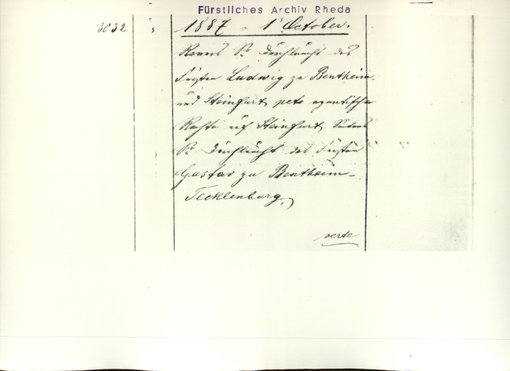 Fürstliches Archiv Rheda
3032
1887 - 1 October.
Sr. Durchlaucht des
Fürsten Ludwig zu Bentheim
und Steinfurt, pcto agnatischer
Rechte auf Steinfurt, Seitens
Sr. Durchlaucht des Fürsten
Gustav zu Bentheim-
Tecklenburg.
verte